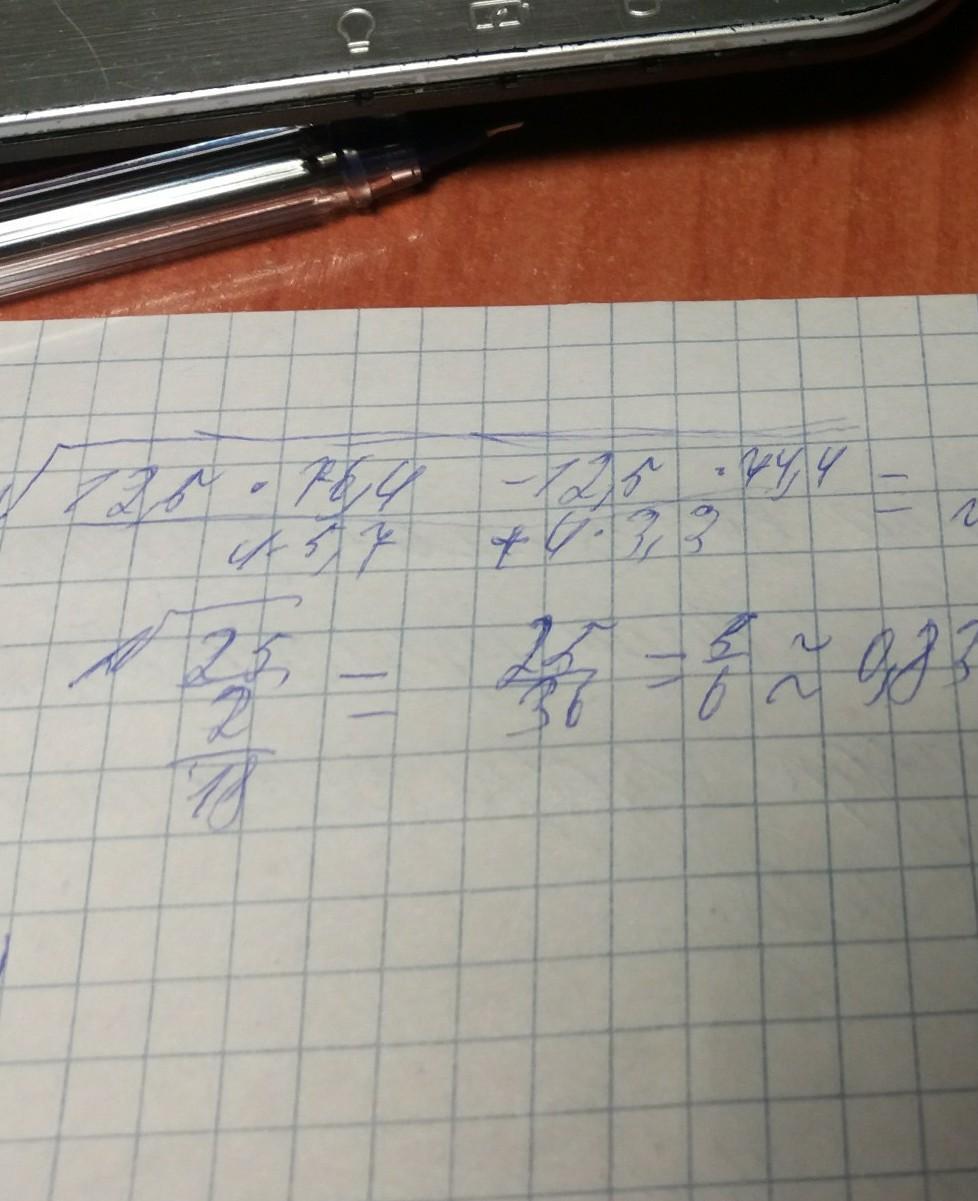 √12,5 · 75,4 - 12,5 · 74,4 =
4 · 5,7 + 4 · 3,3
√25/2/18 = 25/36 = 5/6 ≈ 0,83